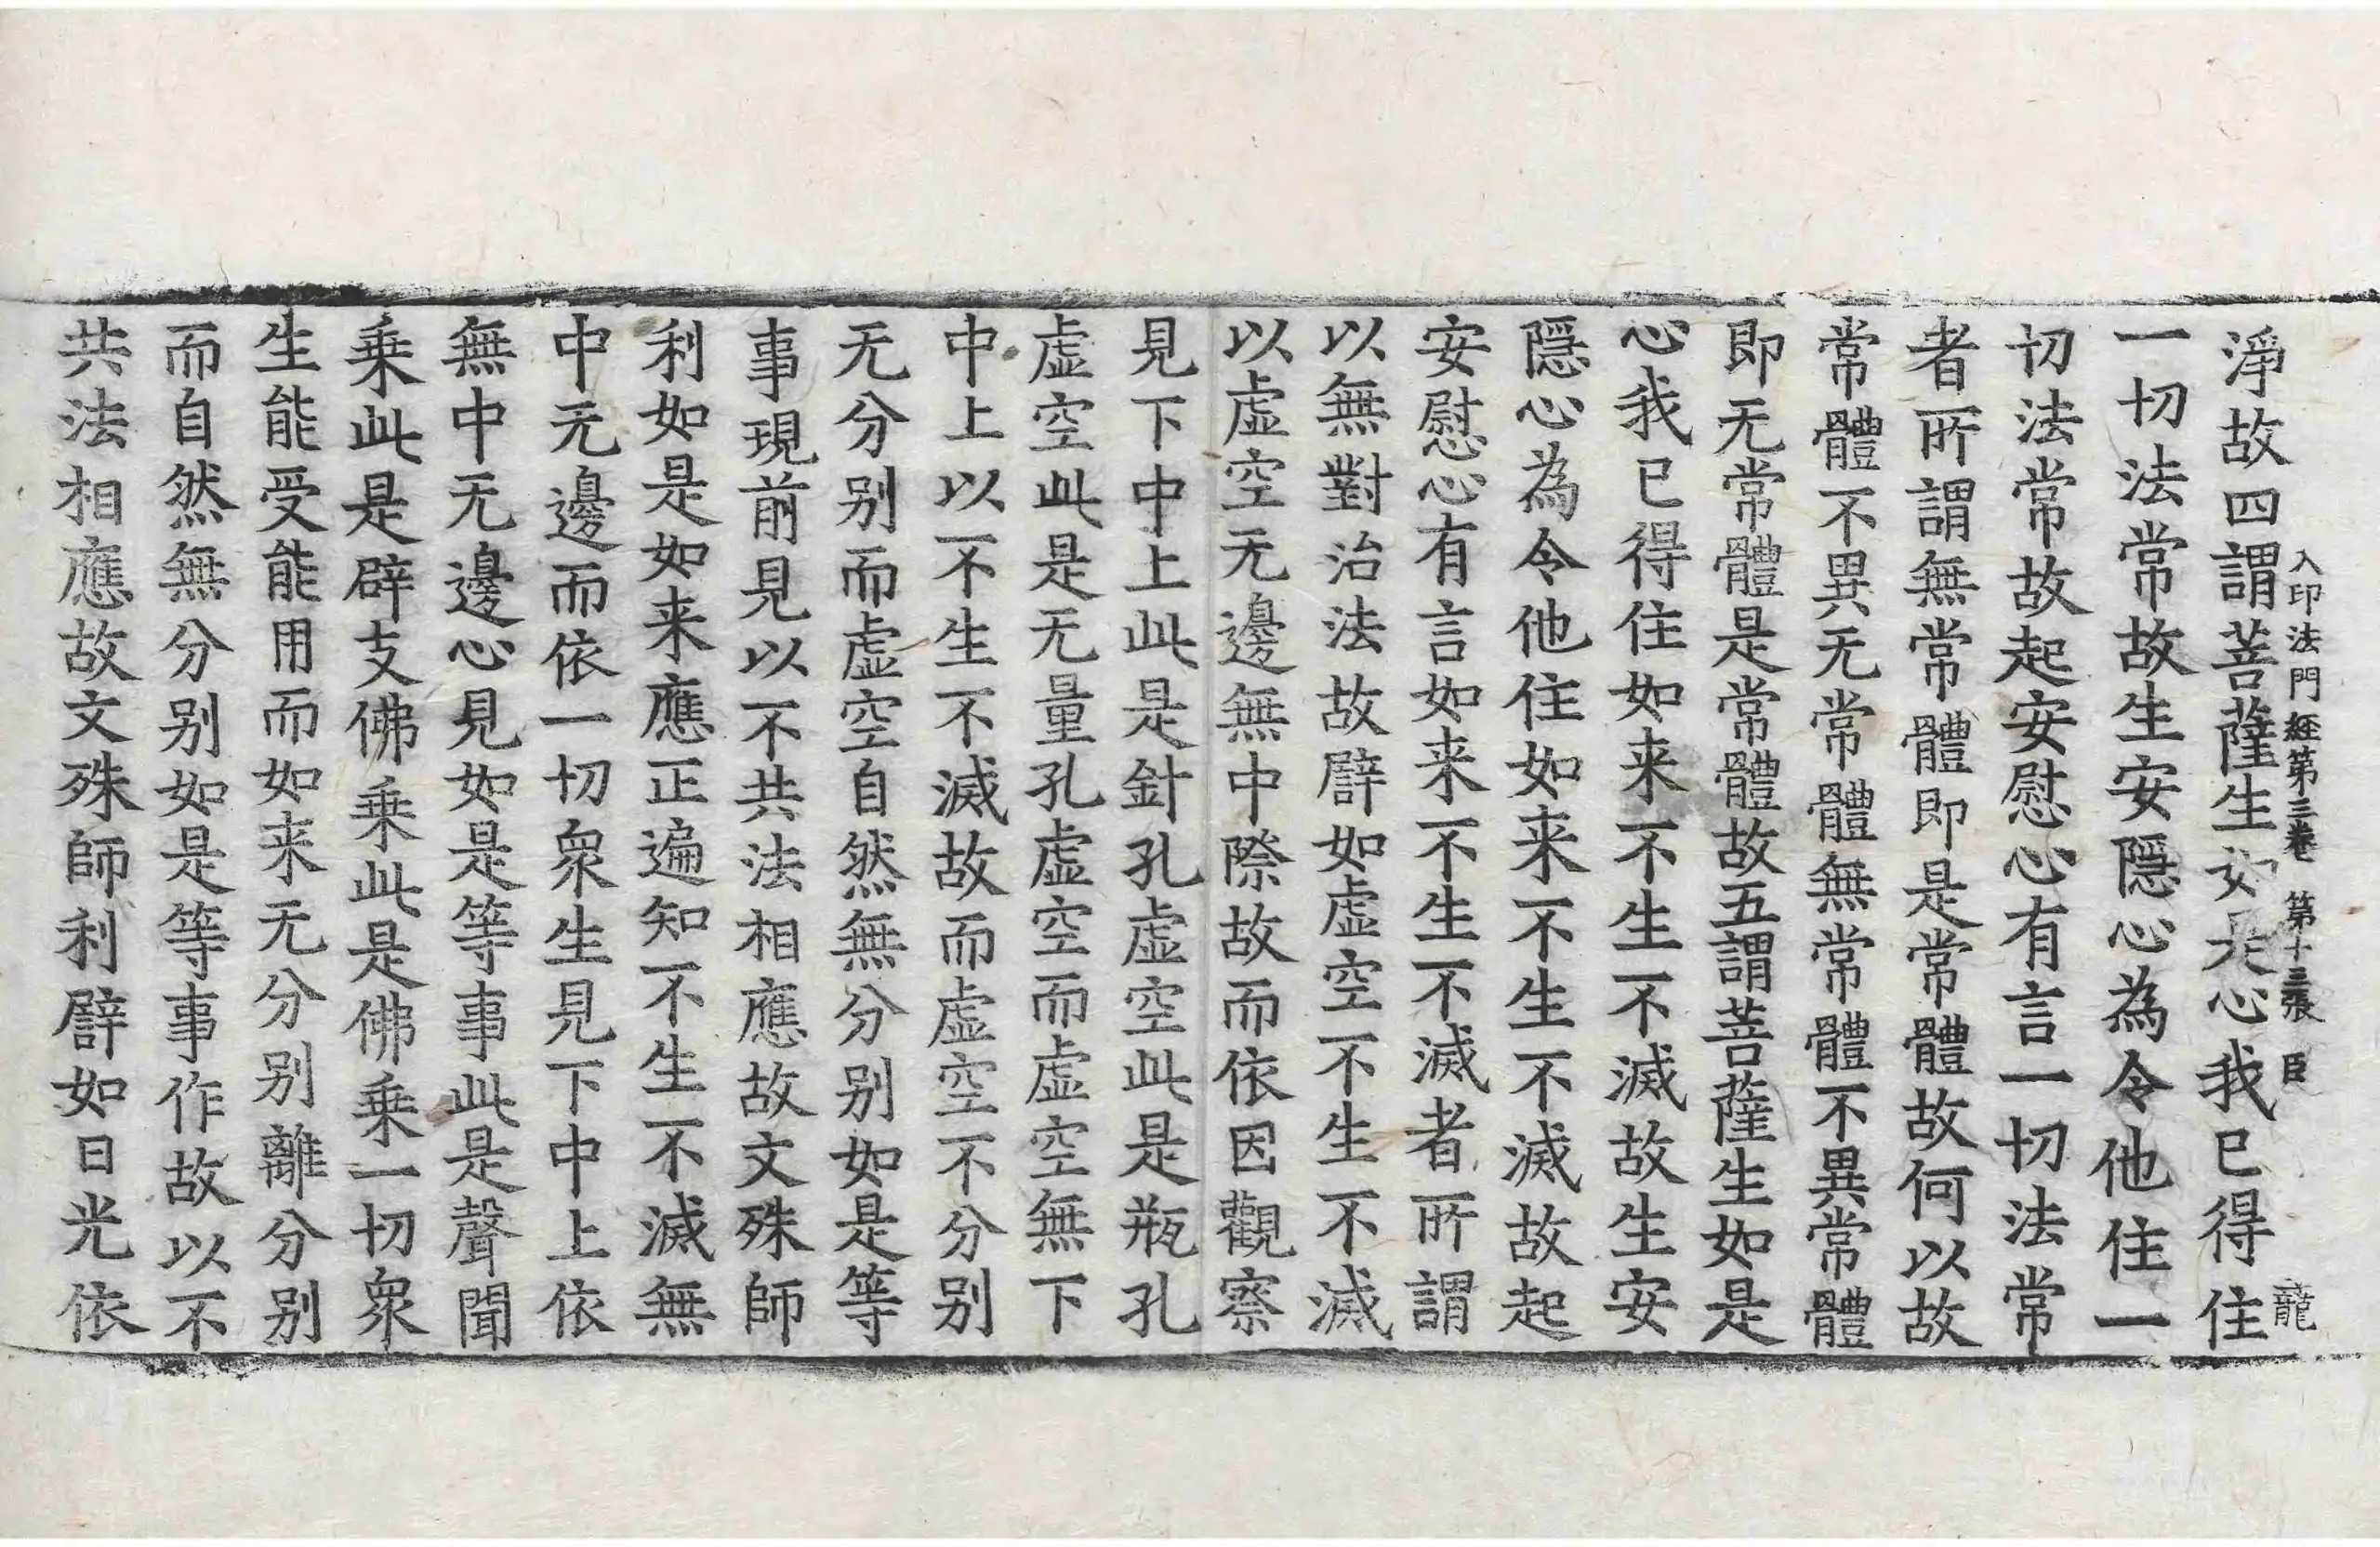 淨故四謂菩薩生如是心我已得住
入印法門經第三卷 第十三張 臣 龍
一切法常故生安隱心為令他住一
切法常故起安慰心有言一切法常
者所謂無常體即是常體故何以故
常體不異无常體無常體不異常體
即无常體是常體故五謂菩薩生如是
心我已得住如来不生不滅故生安
隱心為令他住如来不生不滅故起
安慰心有言如来不生不滅者所謂
以無對治法故譬如虛空不生不滅
以虛空无邊無中際故而依因觀察
見下中上此是針孔虛空此是瓶孔
虛空此是无量孔虛空而虛空無下
中上以不生不滅故而虛空不分别
无分别而虛空自然無分别如是等
事現前見以不共法相應故文殊師
利如是如来應正遍知不生不滅無
中无邊而依一切衆生見下中上依
無中无邊心見如是等事此是聲聞
乗此是辟支佛乗此是佛乗一切衆
生能受能用而如来无分别離分别
而自然無分别如是等事作故以不
共法相應故文殊師利譬如日光依